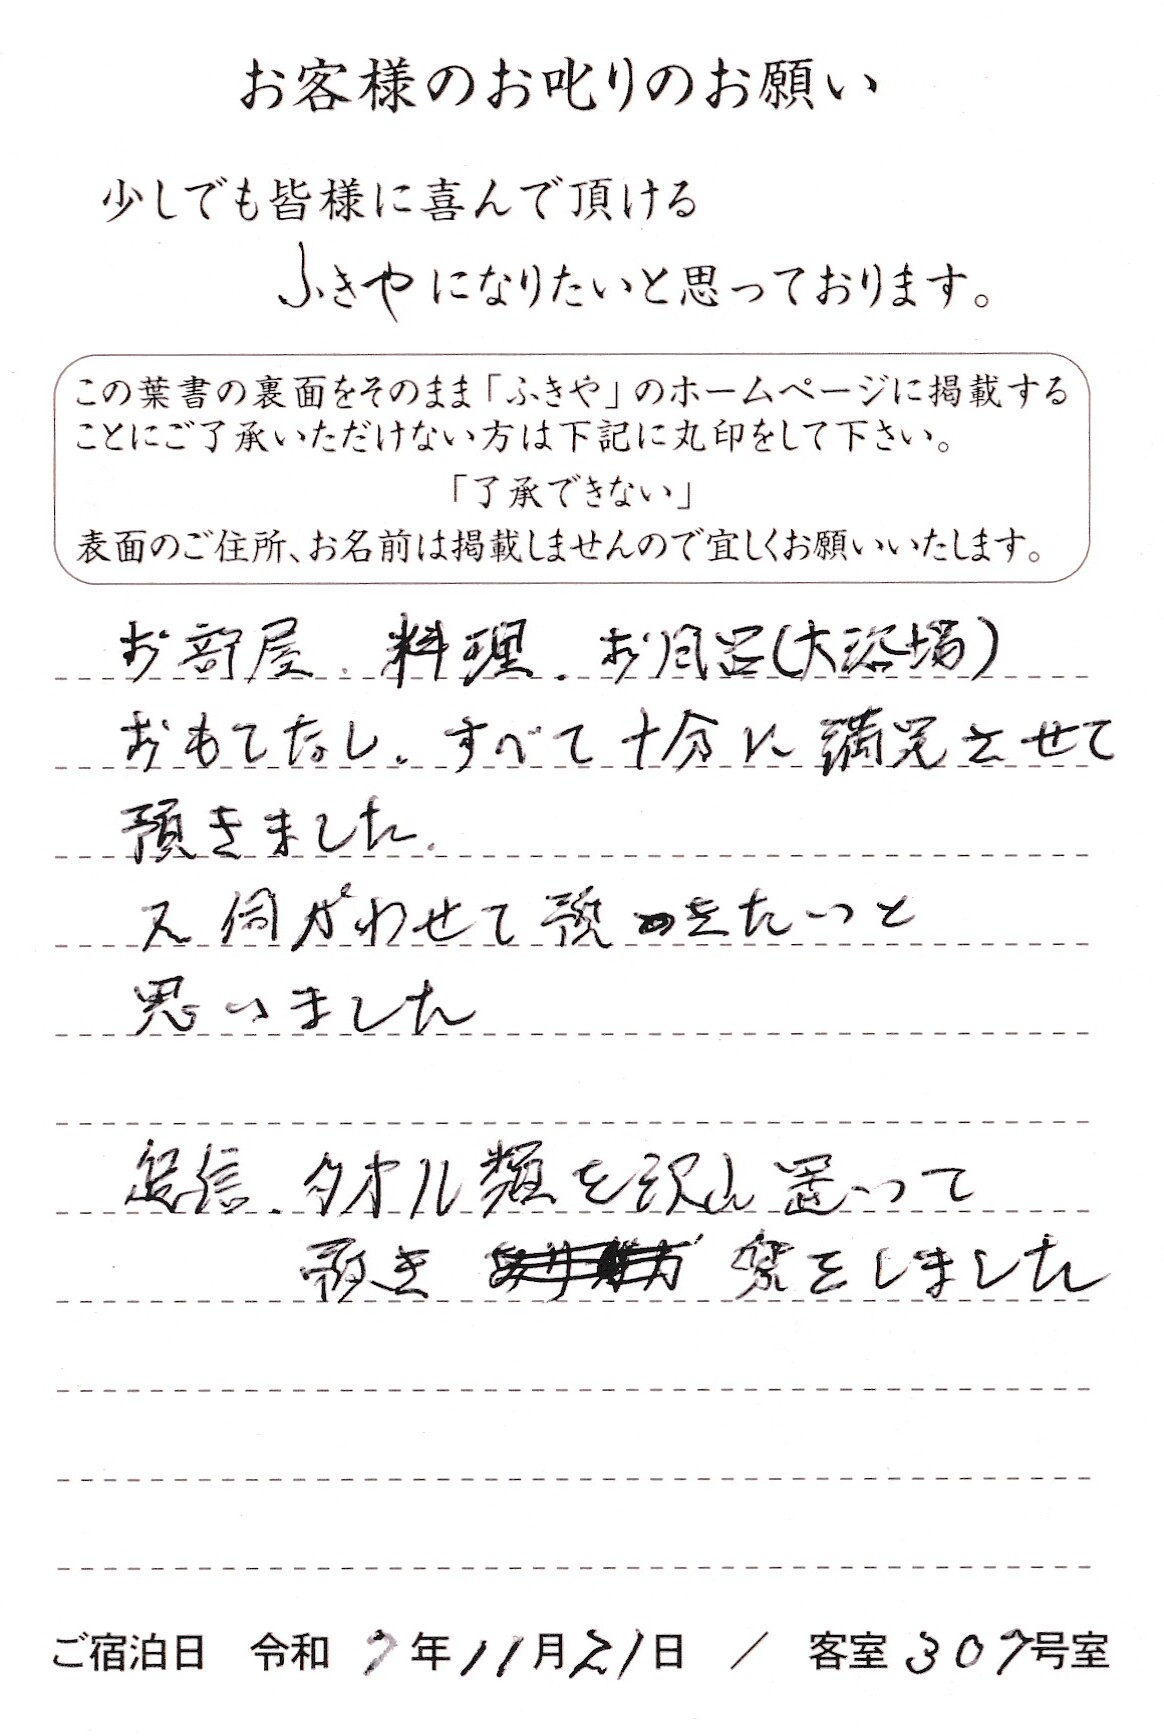 お客様のお叱りのお願い
少しでも皆様に喜んで頂ける
ふきやになりたいと思っております。
この葉書の裏面をそのまま「ふきや」のホームページに掲載する
ことにご了承いただけない方は下記に丸印をして下さい。
「了承できない」
表面のご住所、お名前は掲載しませんので宜しくお願いいたします。
お部屋、料理、お風呂(大浴場)
おもてなし、すべて十分に満足させて
頂きました。
又伺がわせて頂きたいと
思いました
追信、タオル類を沢山置いって
頂き 楽をしました
ご宿泊日 令和 7年11月21日 / 客室307号室